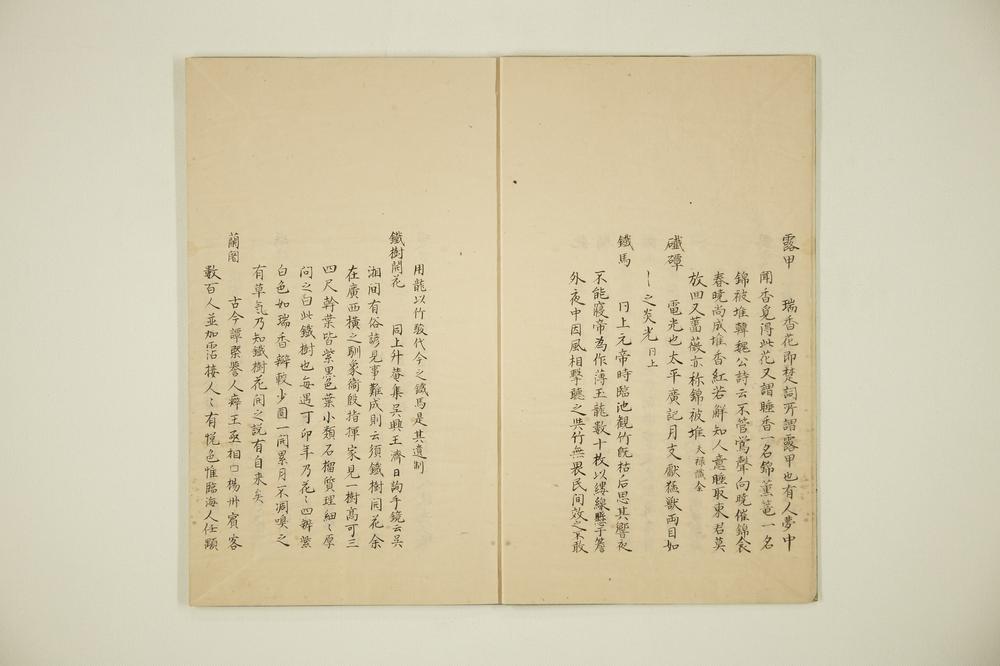 露甲　瑞香花即楚詞所謂露甲也有人夢中
聞香覓得此花又謂睡香一名錦薰篭一名
錦被堆韓魏公詩云不管鶯聲向曉催錦衾
春曉尚成堆香紅若解知人意睡取東君莫
放回又薔薇亦称錦被堆 天禄識余
礮磹　電光也太平廣記月支獻猛獸両目如
〡之炎光 同上
鐵馬　同上元帝時臨池観竹既枯后思其響夜
不能寝帝為作薄玉龍数十枚以縷線懸于簷
外夜中因風相擊聽之與竹無異民間效之不敢
用龍以竹駿代今之鐵馬是其遺制
鐵樹開花　同上升菴集吳興王濟日詢手鏡云吳
湘間有俗諺見事難成則云須鐵樹開花余
在廣西横之馴象衞殷指揮家見一樹高可三
四尺幹葉皆紫黒色葉小類石榴質理細〻厚
問之曰此鐵樹也每遇丁卯年乃花〻四辨紫
白色如瑞香辧較少圓一開累月不凋嗅之
有草気乃知鐵樹花開之説有自来矣
蘭闍　古今譚槩譽人癖王丞相口楊州賓客
數百人並加霑接人〻有悦色惟臨海人任顒